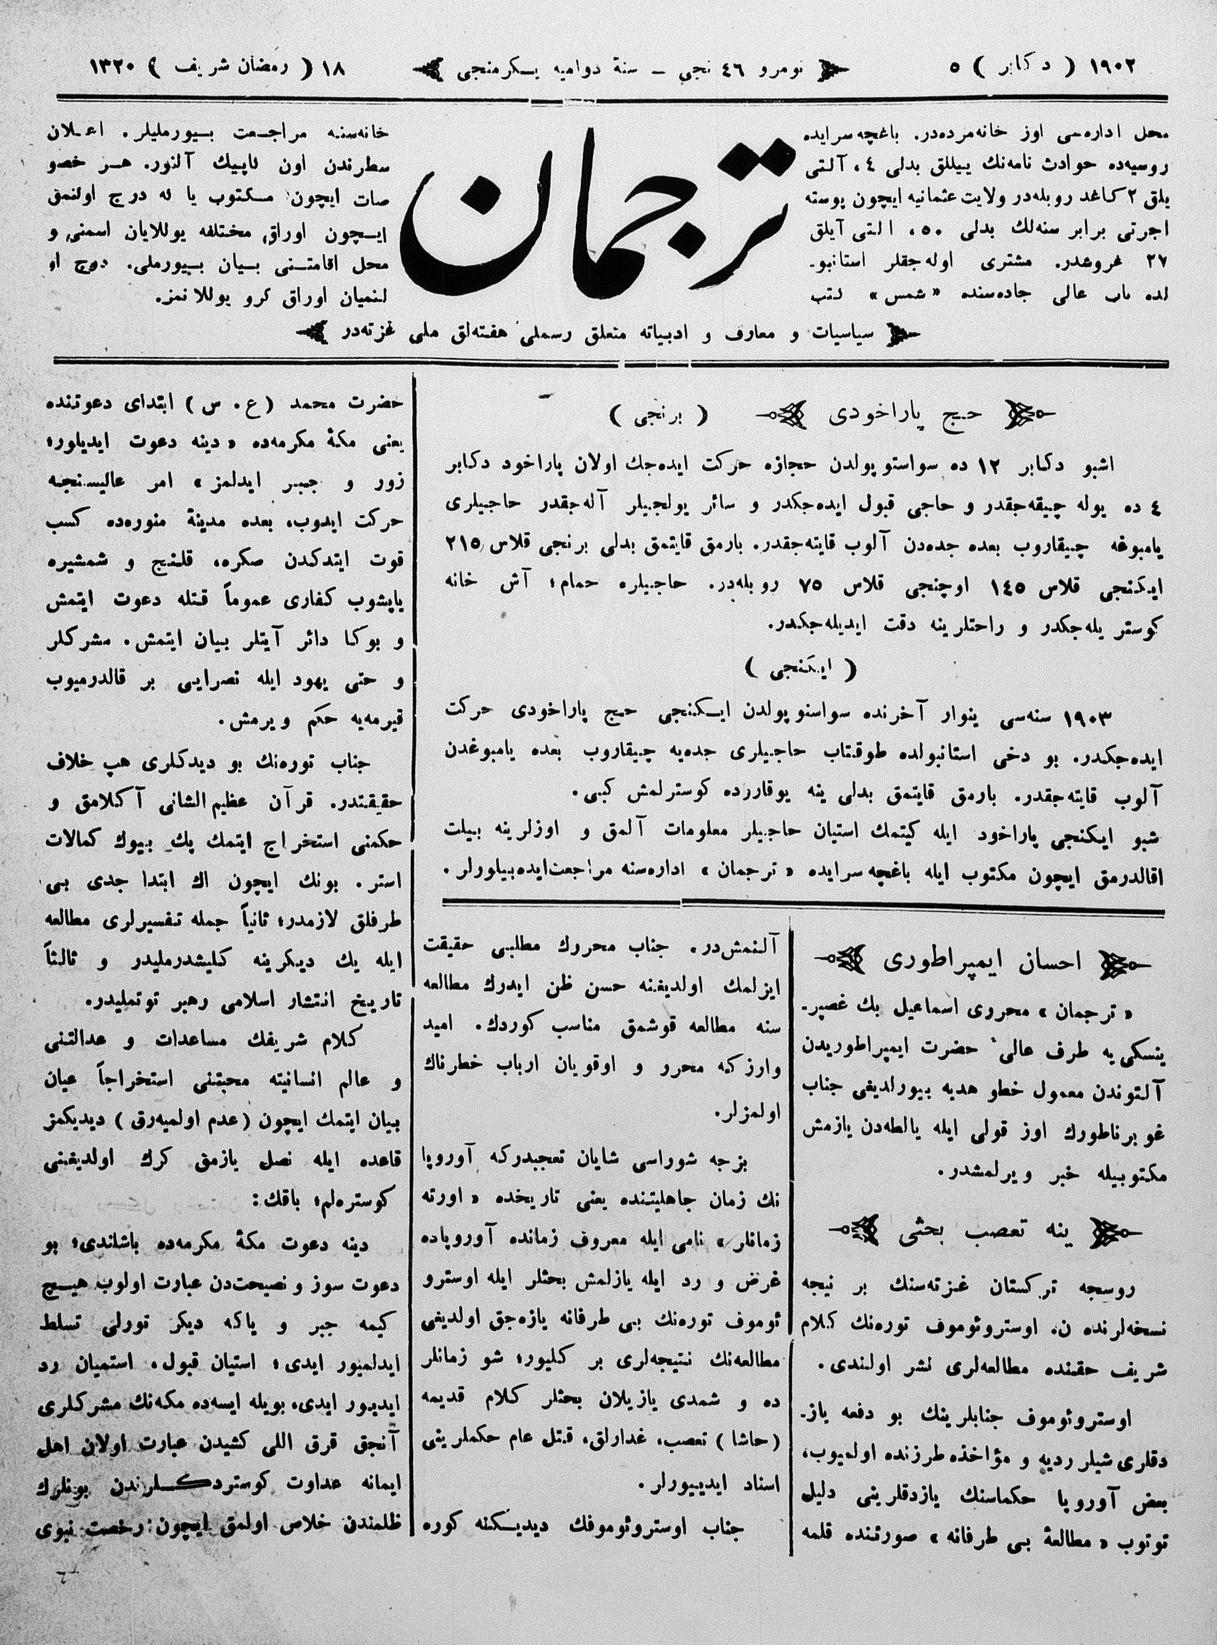 ١٩٠٢ ( دكابر ) ٥
نومرو ٤٦ نجي ــ سنۀ دواميه يكرمنجى
١٨ ( رمضان شريف ) ١٣٢٠
محل اداره‌سى اوز خانه‌مزده‌در. باغچه سرايده
روسيه‌ده حوادث نامه‌نك ييللق بدلى ٤، آلتى
يلق ٢ كاغد روبله‌در ولايت عثمانيه ايچون پوسته
اجرتى برابر سنه‌لك بدلى ٥٠، التى آيلق
٢٧ غروشدر. مشترى اوله‌جقلر استانبو-
لده باب عالى جاده‌سنده «شمس» كتب
ترجمان
خانه‌سنه مراجعت بيورمليلر. اعلان
سطرندن اون كاپيك آلنور. هر خصو
صات ايچون مكتوب يا كه درج اولنمق
ايچون اوراق مختلفه يوللايان اسمنى و
محل اقامتنى بيان بيورملى. درج او
لنميان اوراق كرو يوللانمز.
سياسيات و معارف و ادبياته متعلق رسملى هفته‌لق ملى غزته‌در
حج پاراخودى ( برنجى )
اشبو دكابر ١٢ ده سواستوپولدن حجازه حركت ايده‌جك اولان پاراخود دكابر
٤ ده يوله چيقه‌جقدر و حاجى قبول ايده‌جكدر و سائر يولجيلر آله‌جقدر حاجيلرى
يامبوغه چيقاروب بعده جده‌دن آلوب قايته‌جقدر. بارمق قايتمق بدلى برنجى قلاس ٢١٥،
ايكنجى قلاس ١٤٥ اوچنجى قلاس ٧٥ روبله‌در. حاجيلره حمام؛ آش خانه
كوستريله‌جكدر و راحتلرينه دقت ايديله‌جكدر.
( ايكنجى )
١٩٠٣ سنه‌سى ينوار آخرنده سواستوپولدن ايكنجى حج پاراخودى حركت
ايده‌جكدر. بو دخى استانبولده طوقتاب حاجيلرى جده‌يه چيقاروب بعده يامبوغدن
آلوب قايته‌جقدر. بارمق قايتمق بدلى ينه يوقارزده كوسترلمش كبى.
شبو ايكنجى پاراخود ايله كيتمك استيان حاجيلر معلومات آلمق و اوزلرينه بيلت
اقالدرمق ايچون مكتوب ايله باغچه سرايده «ترجمان» اداره‌سنه مراجعت ايده‌بيلورلر.
احسان ايمپراطورى
«ترجمان» محررى اسماعيل بك غصپر-
ينسكى‌يه طرف عالىٔ حضرت ايمپراطوريدن
آلتوندن معمول خطو هديه بيورلديغى جناب
غوبرناطورك اوز قولى ايله يالطه‌دن يازمش
مكتوبيله خبر ويرلمشدر.
ينه تعصب بحثى
روسجه تركستان غزته‌سنك بر نيجه
نسخه‌لرنده ن، اوستروئوموف توره‌نك كلام
شريف حقنده مطالعه‌لرى نشر اولندى.
اوستروئوموف جنابلرينك بو دفعه ياز-
دقلرى شيلر رديه و مؤاخذه طرزنده اولميوب،
بعض آوروپا حكماسنك يازدقلرينى دليل
توتوب «مطالعۀ بى طرفانه» صورتنده قلمه
آلنمش‌در. جناب محررك مطلبى حقيقت
ايزلمك اولديغنه حسن ظن ايدرك مطالعه
سنه مطالعه قوشمق مناسب كوردك. اميد
وارزكه محرر و اوقويان ارباب خطرناك
اولمزلر.
بزجه شوراسى شايان تعجبدركه آوروپا
نك زمان جاهليتنده يعنى تاريخده «اورته
زمانلر» نامى ايله معروف زمانده آوروپاده
غرض و رد ايله يازلمش بحثلر ايله اوسترو
ئوموف توره‌نك بى طرفانه يازه‌جق اولديغى
مطالعه‌نك نتيجه‌لرى بر كليور؛ شو زمانلر
ده و شمدى يازيلان بحثلر كلام قديمه
(حاشا) تعصب، غدارلق، قتل عام حكملرينى
اسناد ايدييورلر.
جناب اوستروئوموفك ديديكنه كوره
حضرت محمد (ع. س) ابتداى دعوتنده
يعنى مكۀ مكرمه‌ده «دينه دعوت ايديلور؛
زور و جبر ايدلمز» امر عاليسنجه
حركت ايدوب، بعده مدينۀ منوره‌ده كسب
قوت ايتدكدن صكره، قلنج و شمشيره
ياپشوب كفارى عموماً قتله دعوت ايتمش
و بوكا دائر آيتلر بيان ايتمش. مشركلر
و حتى يهود ايله نصرايى بر قالدرميوب
قيرمه‌يه حكم ويرمش.
جناب توره‌نك بو ديدكلرى هپ خلاف
حقيقتدر. قرآن عظيم الشانى آكلامق و
حكمنى استخراج ايتمك پك بيوك كمالات
استر. بونك ايچون اك ابتدا جدى بى
طرفلق لازمدر؛ ثانياً جمله تفسيرلرى مطالعه
ايله يك ديكرينه كليشدرمليدر و ثالثاً
تاريخ انتشار اسلامى رهبر توتمليدر.
كلام شريفك مساعدات و عدالتنى
و عالم انسانيته محبتنى استخراجاً عيان
بيان ايتمك ايچون (عدم اولميه‌رق) ديديكمز
قاعده ايله نصل يازمق كرك اولديغنى
كوستره‌لم؛ باقك:
دينه دعوت مكۀ مكرمه‌ده باشلندى؛ بو
دعوت سوز و نصيحت‌دن عبارت اولوب هيچ
كيمه جبر و ياكه ديكر تورلى تسلط
ايدلميور ايدى؛ استيان قبول، استميان رد
ايديور ايدى، بويله ايسه‌ده مكه‌نك مشركلرى
آنجق قرق اللى كشيدن عبارت اولان اهل
ايمانه عداوت كوستردكلرندن بونلرك
ظلمندن خلاص اولمق ايچون رخصت نبوى